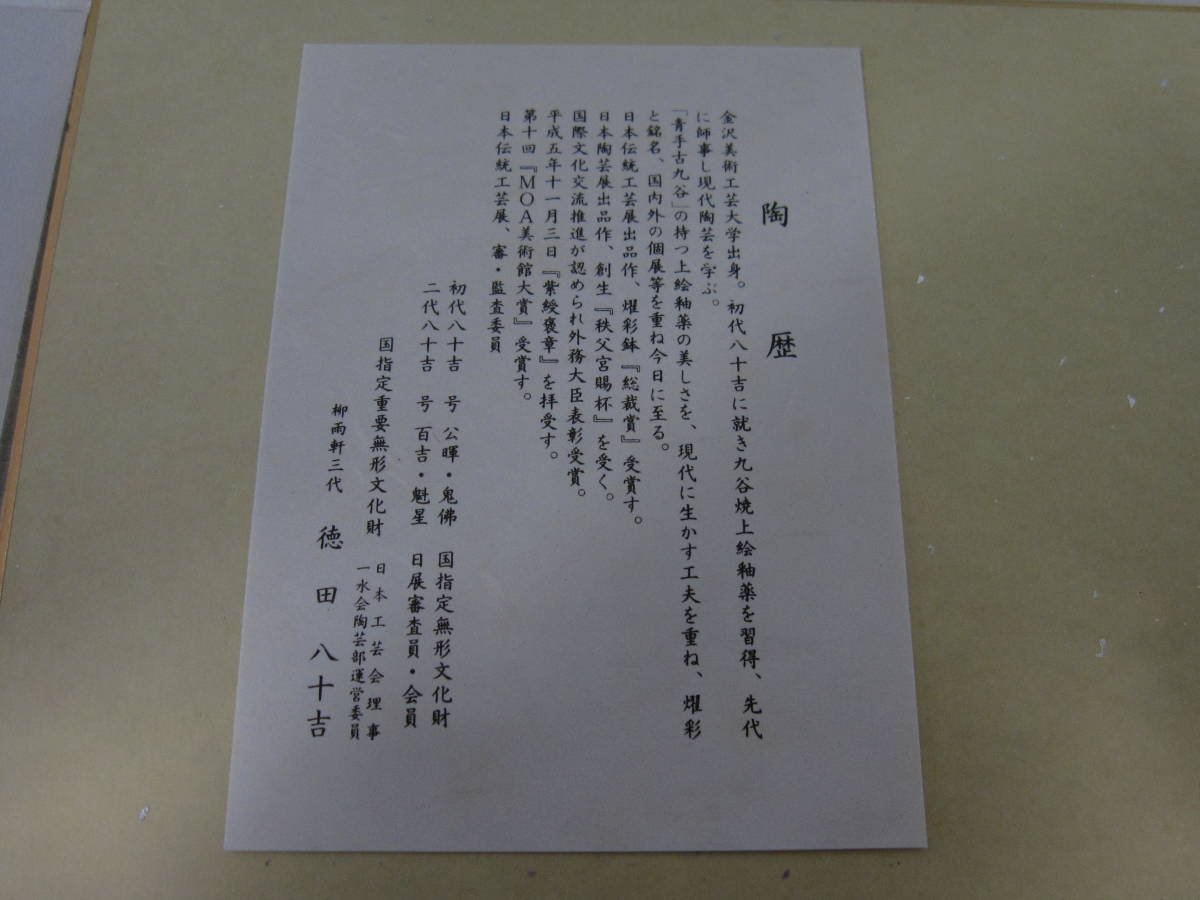 陶歴
金沢美術工芸大学出身。初代八十吉に就き九谷焼上絵釉薬を習得、先代
に師事し現代陶芸を学ぶ。
「青手古九谷」の持つ上絵釉薬の美しさを、現代に生かす工夫を重ね、燿彩
と銘名、国内外の個展等を重ね今日に至る。
日本伝統工芸展出品作、燿彩鉢『総裁賞』受賞す。
日本陶芸展出品作、創生『秩父宮賜杯』を受く。
国際文化交流推進が認められ外務大臣表彰受賞。
平成五年十一月三日『紫綬褒章』を拝受す。
第十回『MOA美術館大賞』受賞す。
日本伝統工芸展、審・監査委員
初代八十吉 号 公暉・鬼佛 国指定無形文化財
二代八十吉 号 百吉・魁星 日展審査員・会員
国指定重要無形文化財 日本工芸会理事
一水会陶芸部運営委員
柳雨軒三代 徳田八十吉